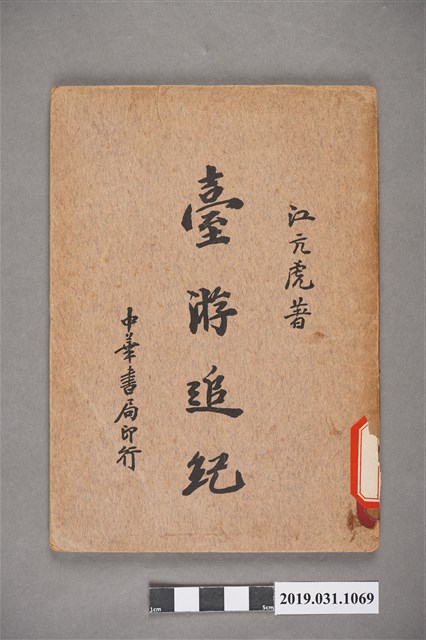 江亢虎著
臺游追紀
中華書局印行
1cm
5cm
2019.031.1069